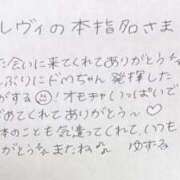 ルヴィの本指名さま
た会いに来てくれてありがとう
しぶりにドMちゃん発揮した
がする☺!オモチャいっぱいで
てくれてありがとう〜♡
体のことも気遣ってくれて、いつも
がとう またねっ ゆずる